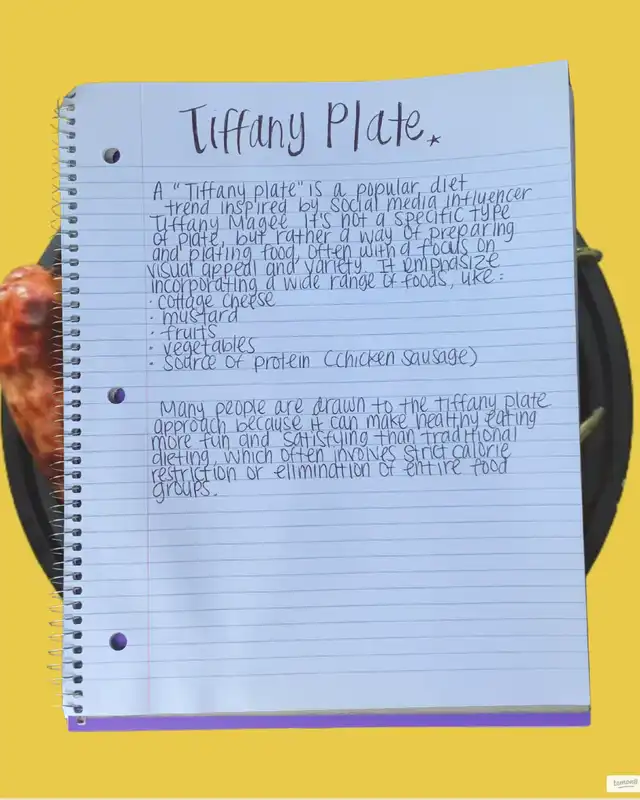 Tiffany Plate.
A "Tiffany plate" is a popular diet
trend inspired by social media influencer
Tiffany Magee. It's not a specific type
of plate, but rather a way of preparing
and plating food, often with a focus on
visual appeal and variety. It emphasize
incorporating a wide range of foods, like:
· cottage cheese
· mustard
· fruits
· vegetables
· source of protein (chicken sausage)
Many people are drawn to the tiffany plate
approach because it can make healthy eating
more fun and satisfying than traditional
dieting, which often involves strict calorie
restriction or elimination of entire food
groups.